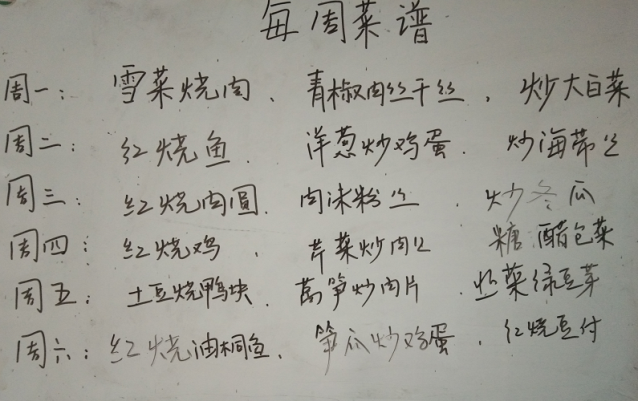 每周菜谱
周一：雪菜烧肉、青椒肉丝干丝、炒大白菜
周二：红烧鱼、洋葱炒鸡蛋、炒海带丝
周三：红烧肉圆、肉沫粉丝、炒冬瓜
周四：红烧鸡、芹菜炒肉丝、糖醋包菜
周五：土豆烧鸭块、莴笋炒肉片、韭菜绿豆芽
周六：红烧油桐鱼、笋瓜炒鸡蛋、红烧豆付